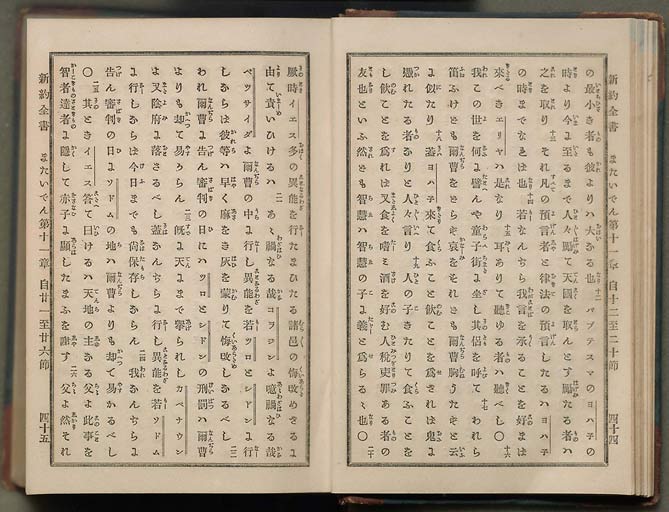 新約全書 またいでん第十一章 自十二至二十節 四十四
の最小き者も彼よりハ大なる也 十二 バプテスマのヨハ子の
時より今に至るまで人々勵て天國を取んとす勵たる者ハ
之を取り 十三 それ凡の預言者と律法の預言したるハヨハ子
の時までなれは也 十四 若なんぢら我言を承ることを好まは
來べきエリヤハ是なり 十五 耳ありて聽ゆる者ハ聽べし〇 十六
我この世を何に譬んや童子街に坐し其侶を呼て 十七 われら
笛ふけども爾曹をどらず哀をそれども爾曹胸うたずと云
に似たり 十八 蓋ヨハ子來て食ふこと飮ことを爲されは鬼に
憑れたる者なりと人々言り 十九 人の子きたりて食ふことを
し飮ことを爲れは又食を嗜み酒を好む人税吏罪ある者の
友也といふ然ども智慧ハ智慧の子に義と爲らるゝ也〇 二十
新約全書 またいでん第十一章 自廿一至廿六節 四十五
厥時イエス多の異能を行たまひたる諸邑の悔改めざるに
由て責いひけるハ 二一 あゝ禍なる哉コラジンよ噫禍なる哉
ベツサイダよ爾曹の中に行し異能を若ツロとシドンに行
しならは彼等ハ早く麻をき灰を蒙りて悔改しなるべし 二二
われ爾曹に告ん審判の日にハツロとシドンの刑罰ハ爾曹
よりも却て易からん 二三 既に天にまで擧られしカペナウン
よ又陰府に落さるべし蓋なんぢらに行し異能を若ソドム
に行しならは今日までも尚保存しならん 二四 我なんぢらに
告ん審判の日にソドムの地ハ爾曹よりも却て易かるべし
〇 二五 其ときイエス答て曰けるハ天地の主なる父よ此事を
智者達者に隱して赤子に顯したまふを謝す 二六 父よ然それ